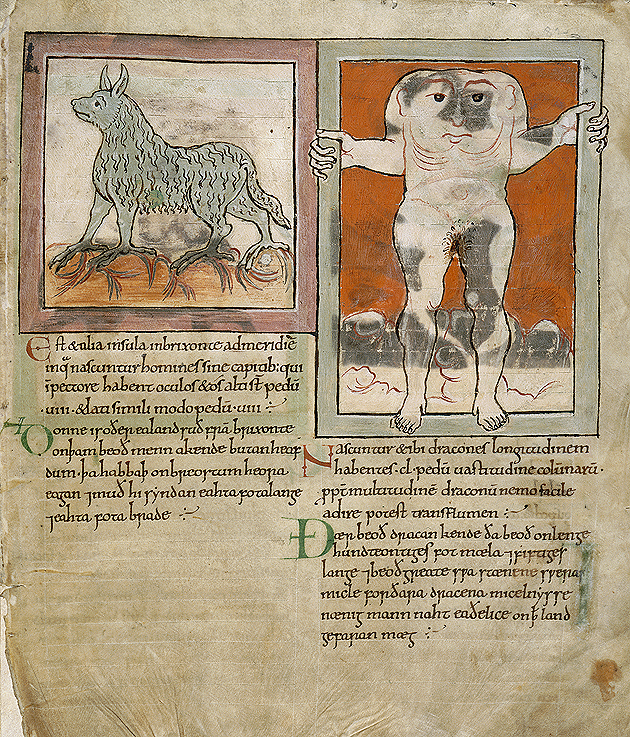 Est & alia insula in brixonte ad meridiē
in q̄ nascuntur homines sine capitib: qui
ī pectore habent oculos & os alti sr̄ pedū
·uiii· & lati simili modo pedū·uiii·
Ðonne is oðer ealand suð frā brixonte
on þam beoð menn akende butan heaf
dum· þa habbaþ on breostum heora
eagan ⁊ muð hi syndan eahta fota lange
⁊ eahta fota brade
Nascuntur & ibi dracones longitudinem
habentes·cl· pedū uastitudine colūnarū·
ppt̄ multitudinē draconū nemo facile
adire potest trans flumen
Ðær beoð dracan kende ða beoð on lenge
hundteontiges fot mæla ⁊ fiftiges
lange ⁊ beoð greate swa stænene sweras
micle for ðara dracena micelnysse
nænig mann naht eaðelice on þ̄ land
gefaran mæg